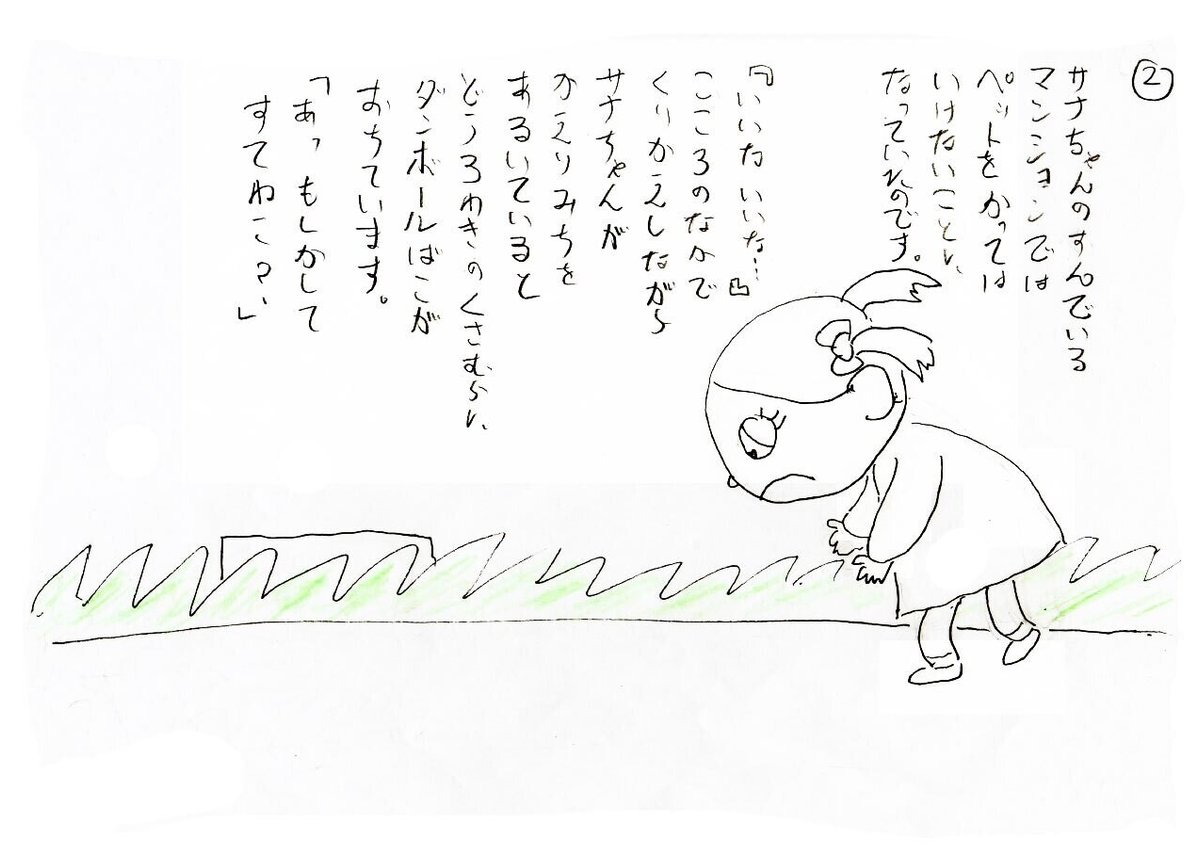 ②
サナちゃんのすんでいる
マンションでは
ペットをかっては
いけないことに
なっているのです。
『いいな いいな…』
こころのなかで
くりかえしながら
サナちゃんが
かえりみちを
あるいていると
どうろわきのくさむらに
ダンボールばこが
おちています。
「あっ もしかして
すてねこ?」